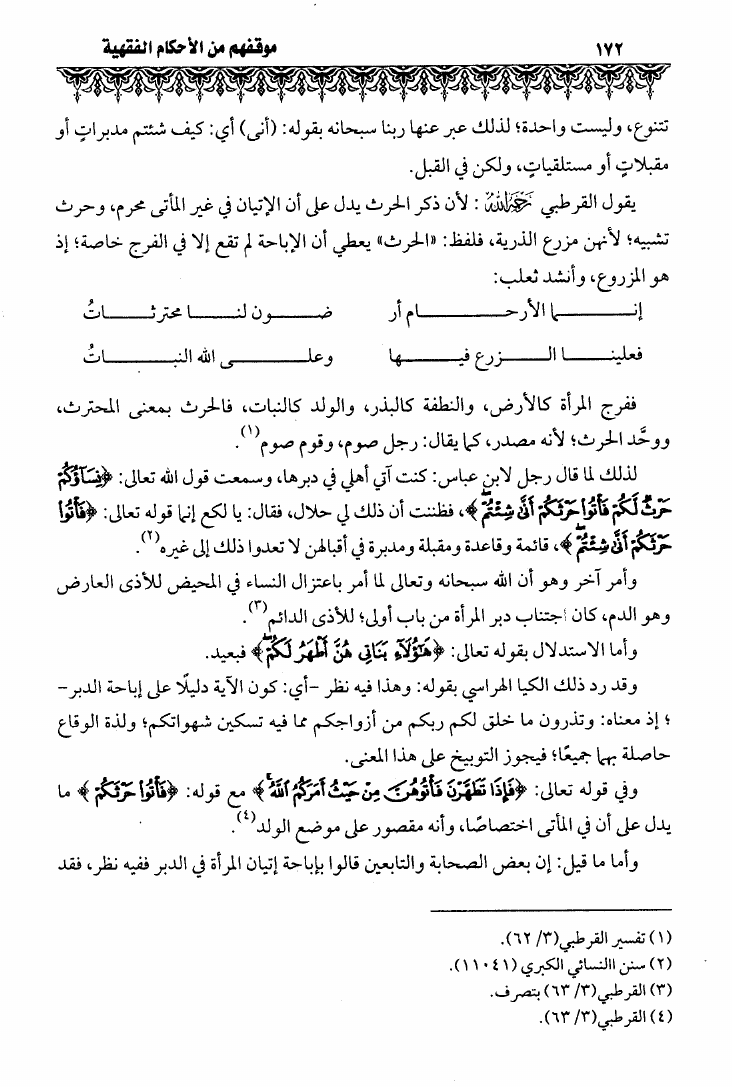 ١٧٢ موقفهم من الأحكام الفقهية
تتنوع، وليست واحدة؛ لذلك عبر عنها ربنا سبحانه بقوله: (أنى) أي: كيف شئتم مدبراتٍ أو
مقبلاتٍ أو مستلقياتٍ، ولكن في القبل.
يقول القرطبي رَحِمَهُ اللَّهُ : لأن ذكر الحرث يدل على أن الإتيان في غير المأتى محرم، وحرث
تشبيه؛ لأنهن مزرع الذرية، فلفظ: «الحرث» يعطي أن الإباحة لم تقع إلا في الفرج خاصة؛ إذ
هو المزروع، وأنشد ثعلب:
إنـــــما الأرحـــــام أر ضـــــون لنـــــا محترثـــــاتُ
فعلينـــــا الـــــزرع فيـــــها وعلـــــى الله النبـــــاتُ
ففرج المرأة كالأرض، والنطفة كالبذر، والولد كالنبات، فالحرث بمعنى المحترث،
ووحَّد الحرث؛ لأنه مصدر، كما يقال: رجل صوم، وقوم صوم(١).
لذلك لما قال رجل لابن عباس: كنت آتي أهلي في دبرها، وسمعت قول الله تعالى: ﴿نِسَآؤُكُمْ
حَرْثٌ لَّكُمْ فَأْتُوا حَرْثَكُمْ أَنَّىٰ شِئْتُمْ ۖ﴾، فظننت أن ذلك لي حلال، فقال: يا لكع إنما قوله تعالى: ﴿فَأْتُوا
حَرْثَكُمْ أَنَّىٰ شِئْتُمْ ۖ﴾، قائمة وقاعدة ومقبلة ومدبرة في أقبالهن لا تعدوا ذلك إلى غيره(٢).
وأمر آخر وهو أن الله سبحانه وتعالى لما أمر باعتزال النساء في المحيض للأذى العارض
وهو الدم، كان اجتناب دبر المرأة من باب أولى؛ للأذى الدائم(٣).
وأما الاستدلال بقوله تعالى: ﴿هَٰٓؤُلَآءِ بَنَاتِى هُنَّ أَطْهَرُ لَكُمْ ۖ﴾ فبعيد.
وقد رد ذلك الكيا الهراسي بقوله: وهذا فيه نظر -أي: كون الآية دليلًا على إباحة الدبر-
؛ إذ معناه: وتذرون ما خلق لكم ربكم من أزواجكم مما فيه تسكين شهواتكم؛ ولذة الوقاع
حاصلة بهما جميعًا؛ فيجوز التوبيخ على هذا المعنى.
وفي قوله تعالى: ﴿فَإِذَا تَطَهَّرْنَ فَأْتُوهُنَّ مِنْ حَيْثُ أَمَرَكُمُ ٱللَّهُ ۚ﴾ مع قوله: ﴿فَأْتُوا حَرْثَكُمْ﴾ ما
يدل على أن في المأتى اختصاصًا، وأنه مقصور على موضع الولد(٤).
وأما ما قيل: إن بعض الصحابة والتابعين قالوا بإباحة إتيان المرأة في الدبر ففيه نظر، فقد
(١) تفسير القرطبي(٣/ ٦٢).
(٢) سنن االنسائي الكبري (١١٠٤١).
(٣) القرطبي(٣/ ٦٣) بتصرف.
(٤) القرطبي(٣/ ٦٣).